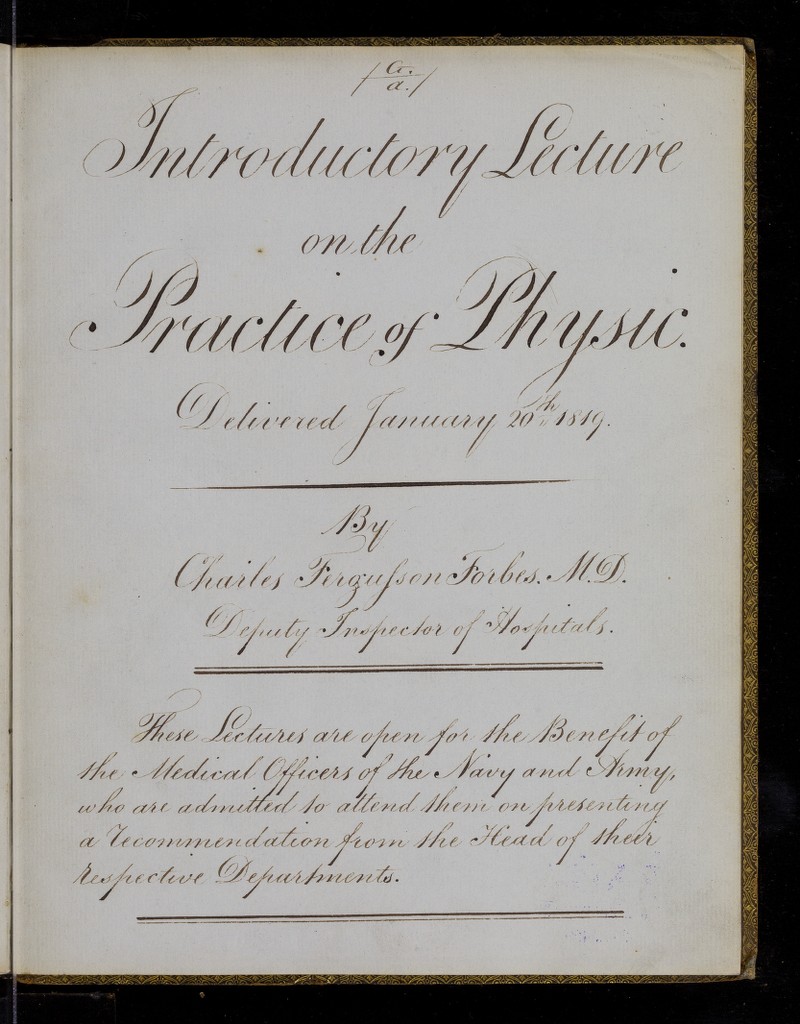 a.
a.
Introductory Lecture
on the
Practice of Physic.
Delivered January 20th 1819.
By
Charles Fergusson Forbes. M.D.
Deputy Inspector of Hospitals.
These Lectures are open for the Benefit of
the Medical Officers of the Navy and Army,
who are admitted to attend them on presenting
a recommendation from the Head of their
respective Departments.